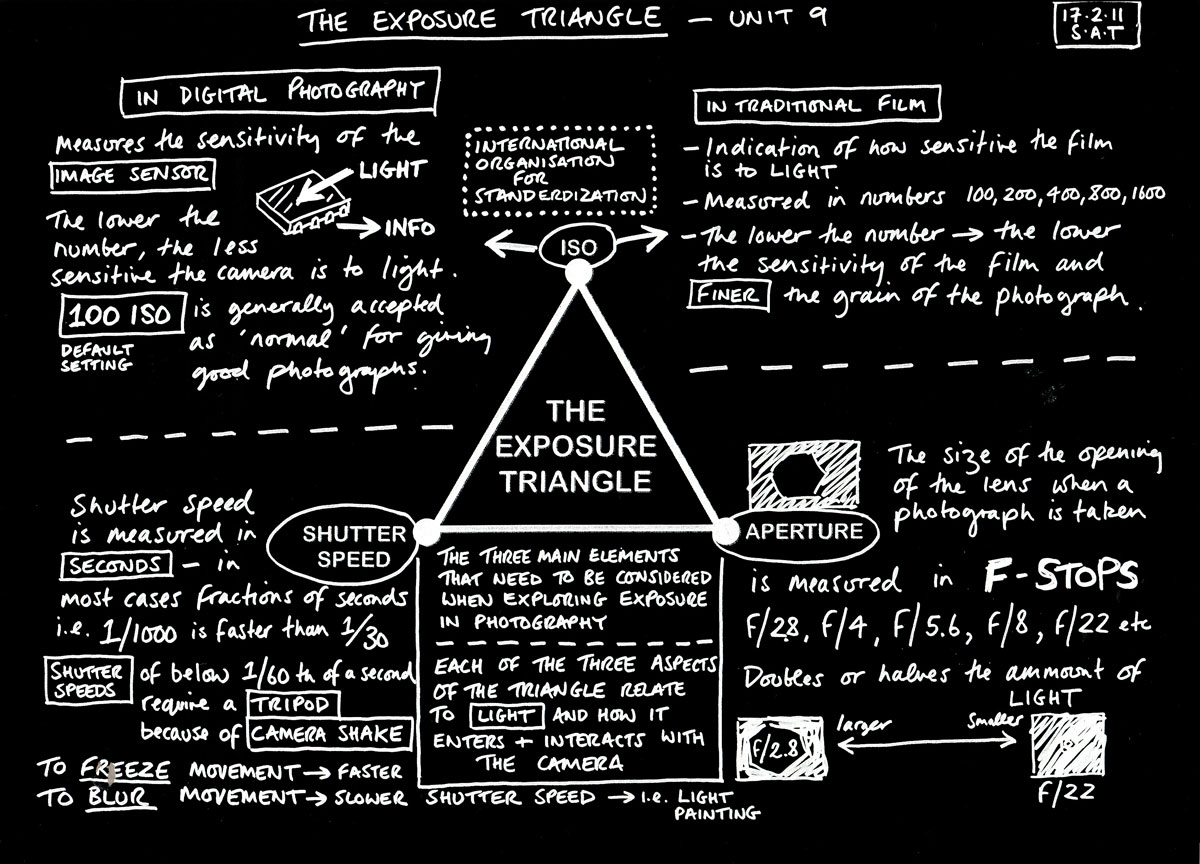 THE EXPOSURE TRIANGLE — UNIT 9
17·2·11
S·A·T
IN DIGITAL PHOTOGRAPHY
Measures the sensitivity of the
IMAGE SENSOR
LIGHT
INFO
The lower the
number, the less
sensitive the camera is to light.
100 ISO is generally accepted
DEFAULT
SETTING
as 'normal' for giving
good photographs.
INTERNATIONAL
ORGANISATION
FOR
STANDERDIZATION
ISO
IN TRADITIONAL FILM
- Indication of how sensitive the film
is to LIGHT
- Measured in numbers 100, 200, 400, 800, 1600
- The lower the number → the lower
the sensitivity of the film and
FINER the grain of the photograph.
THE
EXPOSURE
TRIANGLE
Shutter Speed
is measured in
SECONDS — in
most cases fractions of seconds
i.e. 1/1000 is faster than 1/30
SHUTTER
SPEEDS
of below 1/60 th of a second
require a TRIPOD
because of CAMERA SHAKE
TO FREEZE MOVEMENT → FASTER
TO BLUR MOVEMENT → SLOWER SHUTTER SPEED → i.e. LIGHT
PAINTING
SHUTTER
SPEED
THE THREE MAIN ELEMENTS
THAT NEED TO BE CONSIDERED
WHEN EXPLORING EXPOSURE
IN PHOTOGRAPHY
EACH OF THE THREE ASPECTS
OF THE TRIANGLE RELATE
TO LIGHT AND HOW IT
ENTERS + INTERACTS WITH
THE CAMERA
APERTURE
The size of the opening
of the lens when a
photograph is taken
is measured in F-STOPS
F/2.8, F/4, F/5.6, F/8, F/22 etc
Doubles or halves the ammount of
LIGHT
larger
smaller
F/2.8
F/22